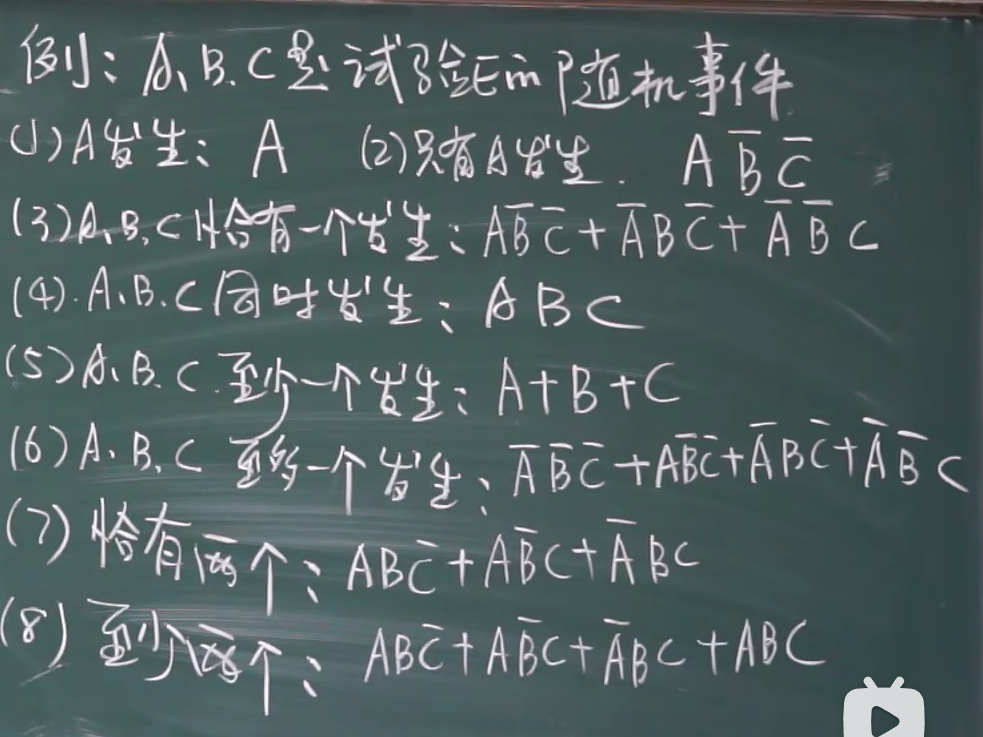 例：A、B、C是试验E的随机事件
(1)A发生：A (2)只有A发生. AB̅C̅
(3)A、B、C恰有一个发生：AB̅C̅+A̅BC̅+A̅B̅C
(4).A、B、C同时发生：ABC
(5)A、B、C至少一个发生：A+B+C
(6)A、B、C至多一个发生：A̅B̅C̅+AB̅C̅+A̅BC̅+A̅B̅C
(7)恰有两个：ABC̅+AB̅C+A̅BC
(8)至少两个：ABC̅+AB̅C+A̅BC+ABC